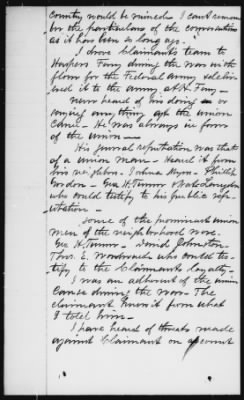 country would be ruined. I can't remem-
ber the particulars of the conversation
as it has been so long ago.
I drove Claimant's team to
Harpers Ferry during the war with
flour for the Federal army & deliv-
ered it to the army at H. Ferry -
never heard of his doing or
saying anything agt the union
Cause - He was always in favor
of the union -
His general reputation was that
of a union man - Heard it from
his neighbors. Joshua Phillip
Gordon - Geo. H. Turner
who could testify to his public rep-
utation -
Some of the prominent union
men of the neighborhood were.
Geo H. Turner - David Johnston -
Thos. E. who could tes-
tify to the Claimant's loyalty -
I was an adherent of the union
Cause during the war - The
claimant knew it from what
I told him -
I have heard of threats made
against Claimant on account